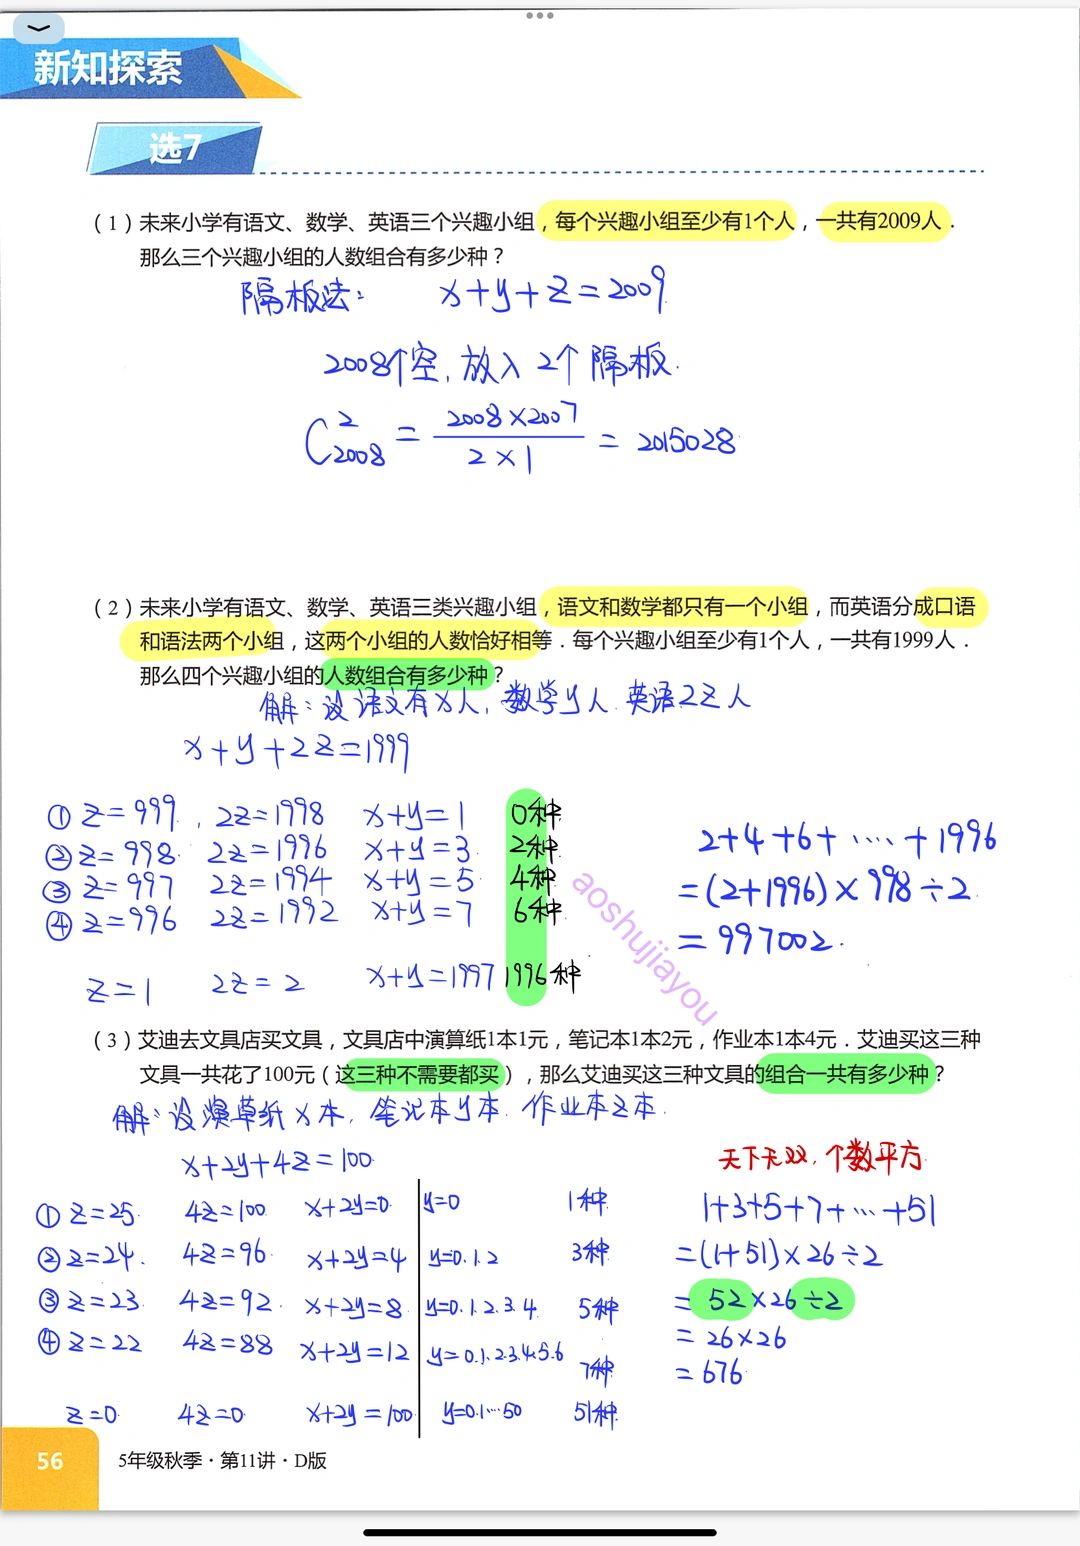 新知探索
选7
（1）未来小学有语文、数学、英语三个兴趣小组，每个兴趣小组至少有1个人，一共有2009人．
那么三个兴趣小组的人数组合有多少种？
隔板法： x+y+z=2009
2008个空，放入2个隔板．
C²₂₀₀₈ = 2008×2007 / 2×1 = 2015028
（2）未来小学有语文、数学、英语三类兴趣小组，语文和数学都只有一个小组，而英语分成口语
和语法两个小组，这两个小组的人数恰好相等．每个兴趣小组至少有1个人，一共有1999人．
那么四个兴趣小组的人数组合有多少种？
解：设语文有x人，数学y人．英语2z人
x+y+2z=1999
① z=999， 2z=1998 x+y=1 0种
② z=998． 2z=1996 x+y=3． 2种
③ z=997 2z=1994 x+y=5 4种
④ z=996 2z=1992 x+y=7 6种
z=1 2z=2 x+y=1997 1996种
2+4+6+……+1996
=(2+1996)×998÷2
=997002．
aoshujiayou
（3）艾迪去文具店买文具，文具店中演算纸1本1元，笔记本1本2元，作业本1本4元．艾迪买这三种
文具一共花了100元（这三种不需要都买），那么艾迪买这三种文具的组合一共有多少种？
解：设演草纸x本，笔记本y本．作业本z本．
x+2y+4z=100
① z=25． 4z=100 x+2y=0 y=0 1种
② z=24． 4z=96 x+2y=4 y=0.1.2 3种
③ z=23 4z=92． x+2y=8 y=0.1.2.3.4 5种
④ z=22 4z=88 x+2y=12 y=0.1.2.3.4.5.6 7种
z=0 4z=0 x+2y=100 y=0.1…50 51种
天下无双，个数平方
1+3+5+7+…+51
=(1+51)×26÷2
=52×26÷2
=26×26
=676
56
5年级秋季·第11讲·D版